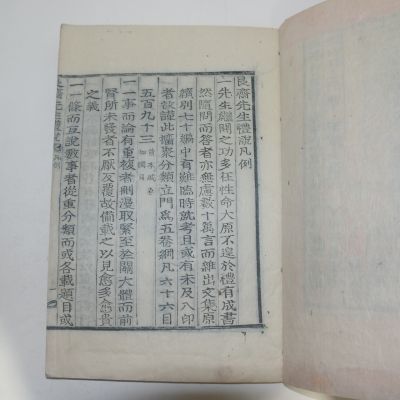 艮齋先生禮說凡例
一先生繼開之功多在性命大原不遑於禮有成書
然隨問而答者亦無慮數十萬言而雜出文集原
續別七十編中有難臨時就考且或有未及入印
者故謹此攟聚分類立門爲五卷綱凡六十六目
五百九十三
一一事而論有重複者則漫取緊至於關大體而前
賢所未發者不厭反覆故備載之以見愈多愈貴
之義
一一條而互說數事者從重分類而或各載題目或
艮齋先生禮說 凡例